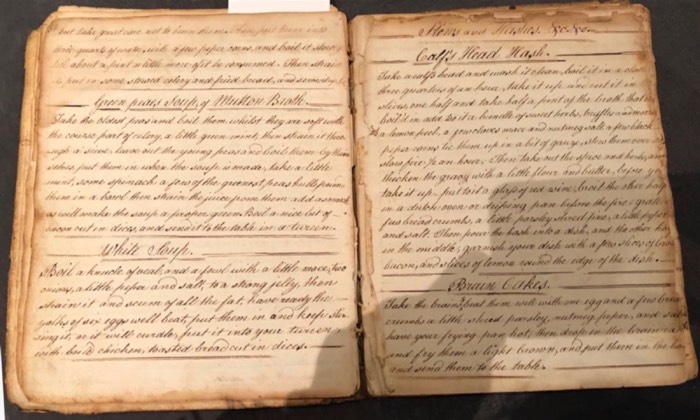 but take great care not to burn them. Then put them into
three quarts of water, with a few pepper corns, and boil it
till about a pint a little more of it be consumed. Then strain
put in some stewed celery and fried bread, and send
Green peas Soup, of Mutton Broth.
Take the oldest peas and boil them whilst they are soft with
the course part of celery, a little green mint, then strain it thro
ugh a sieve, leave out the young peas and boil them by them
selves, put them in when the soup is made, take a little
mint, some spinach a few of the greenest peas hulls pound
them in a bowl then strain the juice from them add as much
as will make the soup a proper green Boil a nice bit of
bacon cut in dices, and send it to the table in a tureen.
White Soup.
Boil a knucle of veal, and a fowl with a little mace, two
onions, a little pepper and salt, to a strong jelly, then
strain it and scum of all the fat, have ready the
yolks of six eggs well beat, put them in and keep stir
ing it, or it will curdle, put it into your tureen
with boild chicken, toasted bread cut in dices.
Stews and Hashes. &c. &c.
Calf's Head Hash.
Take a calfs head and wash it clean, boil it in a cloth
three quarters of an hour, take it up and cut it in
slices, one half and take half a pint of the broth that
boil'd in add to it a bundle of sweet herbs, truffles and
a lemon peel, a few cloves mace and nutmeg with a few black
peper corns tie them up in a bit of gauze, stew them over a
slow fire for an hour, Then take out the spice and herbs, and
thicken the gravy with a little flour and butter, before you
take it up, put to it a glass of red wine, broil the other half
in a dutch oven or dripping pan before the fire; grate
few bread crumbs, a little parsley shred fine, a little peper
and salt. Then pour the hash into a dish, and the other half
in the middle, garnish your dish with a few slices of
bacon, and slices of lemon round the edge of the dish.
Brain Cakes.
Take the brains, beat them well with one egg and a few bread
crumbs a little shred parsley, nutmeg, peper, and salt
have your frying pan hot, then drop in the brains
and fry them a light brown, and put them in the
and send them to the table.